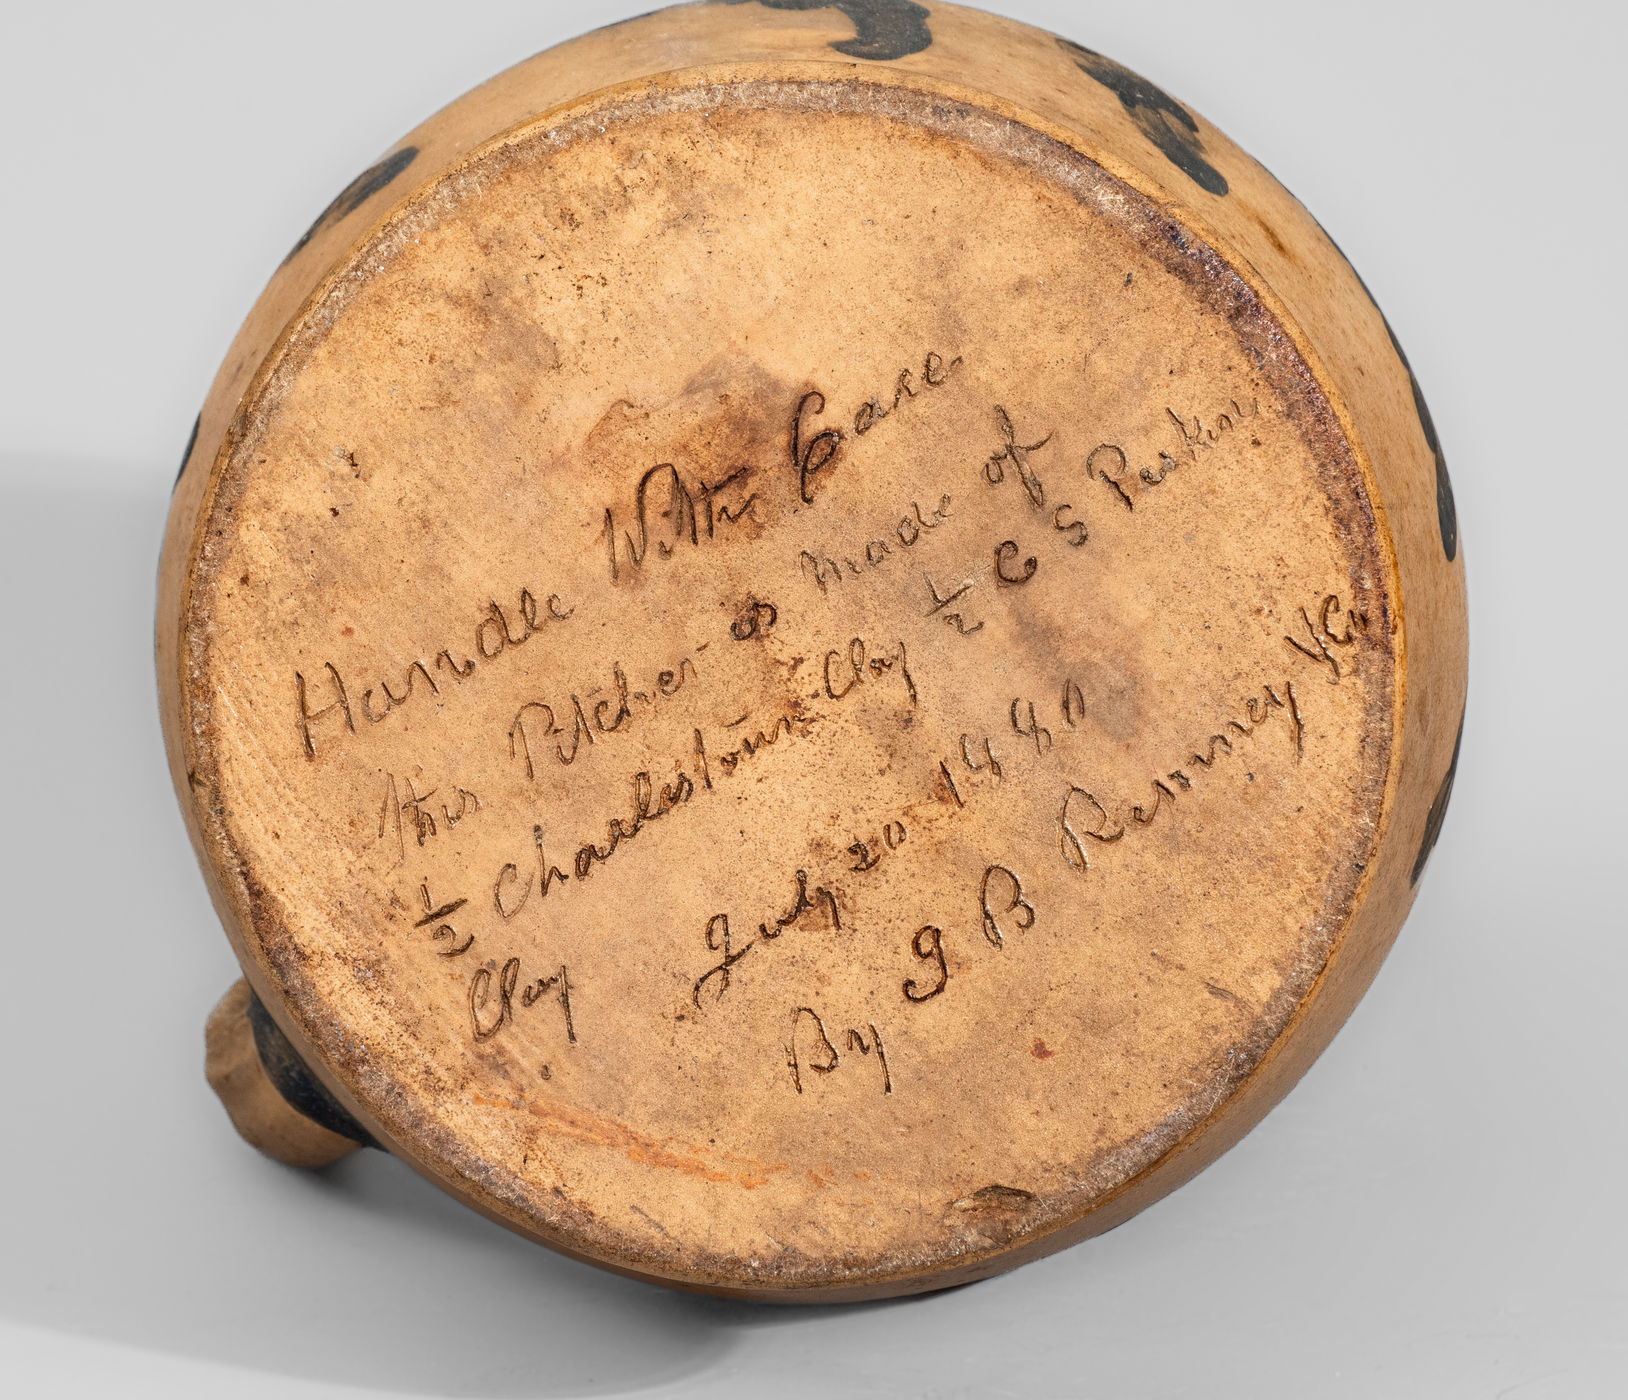 Handle With Care
this Pitcher is made of
½ Charlestown Clay ½ C S Perkins
Clay July 20 1880
By J B Remmey